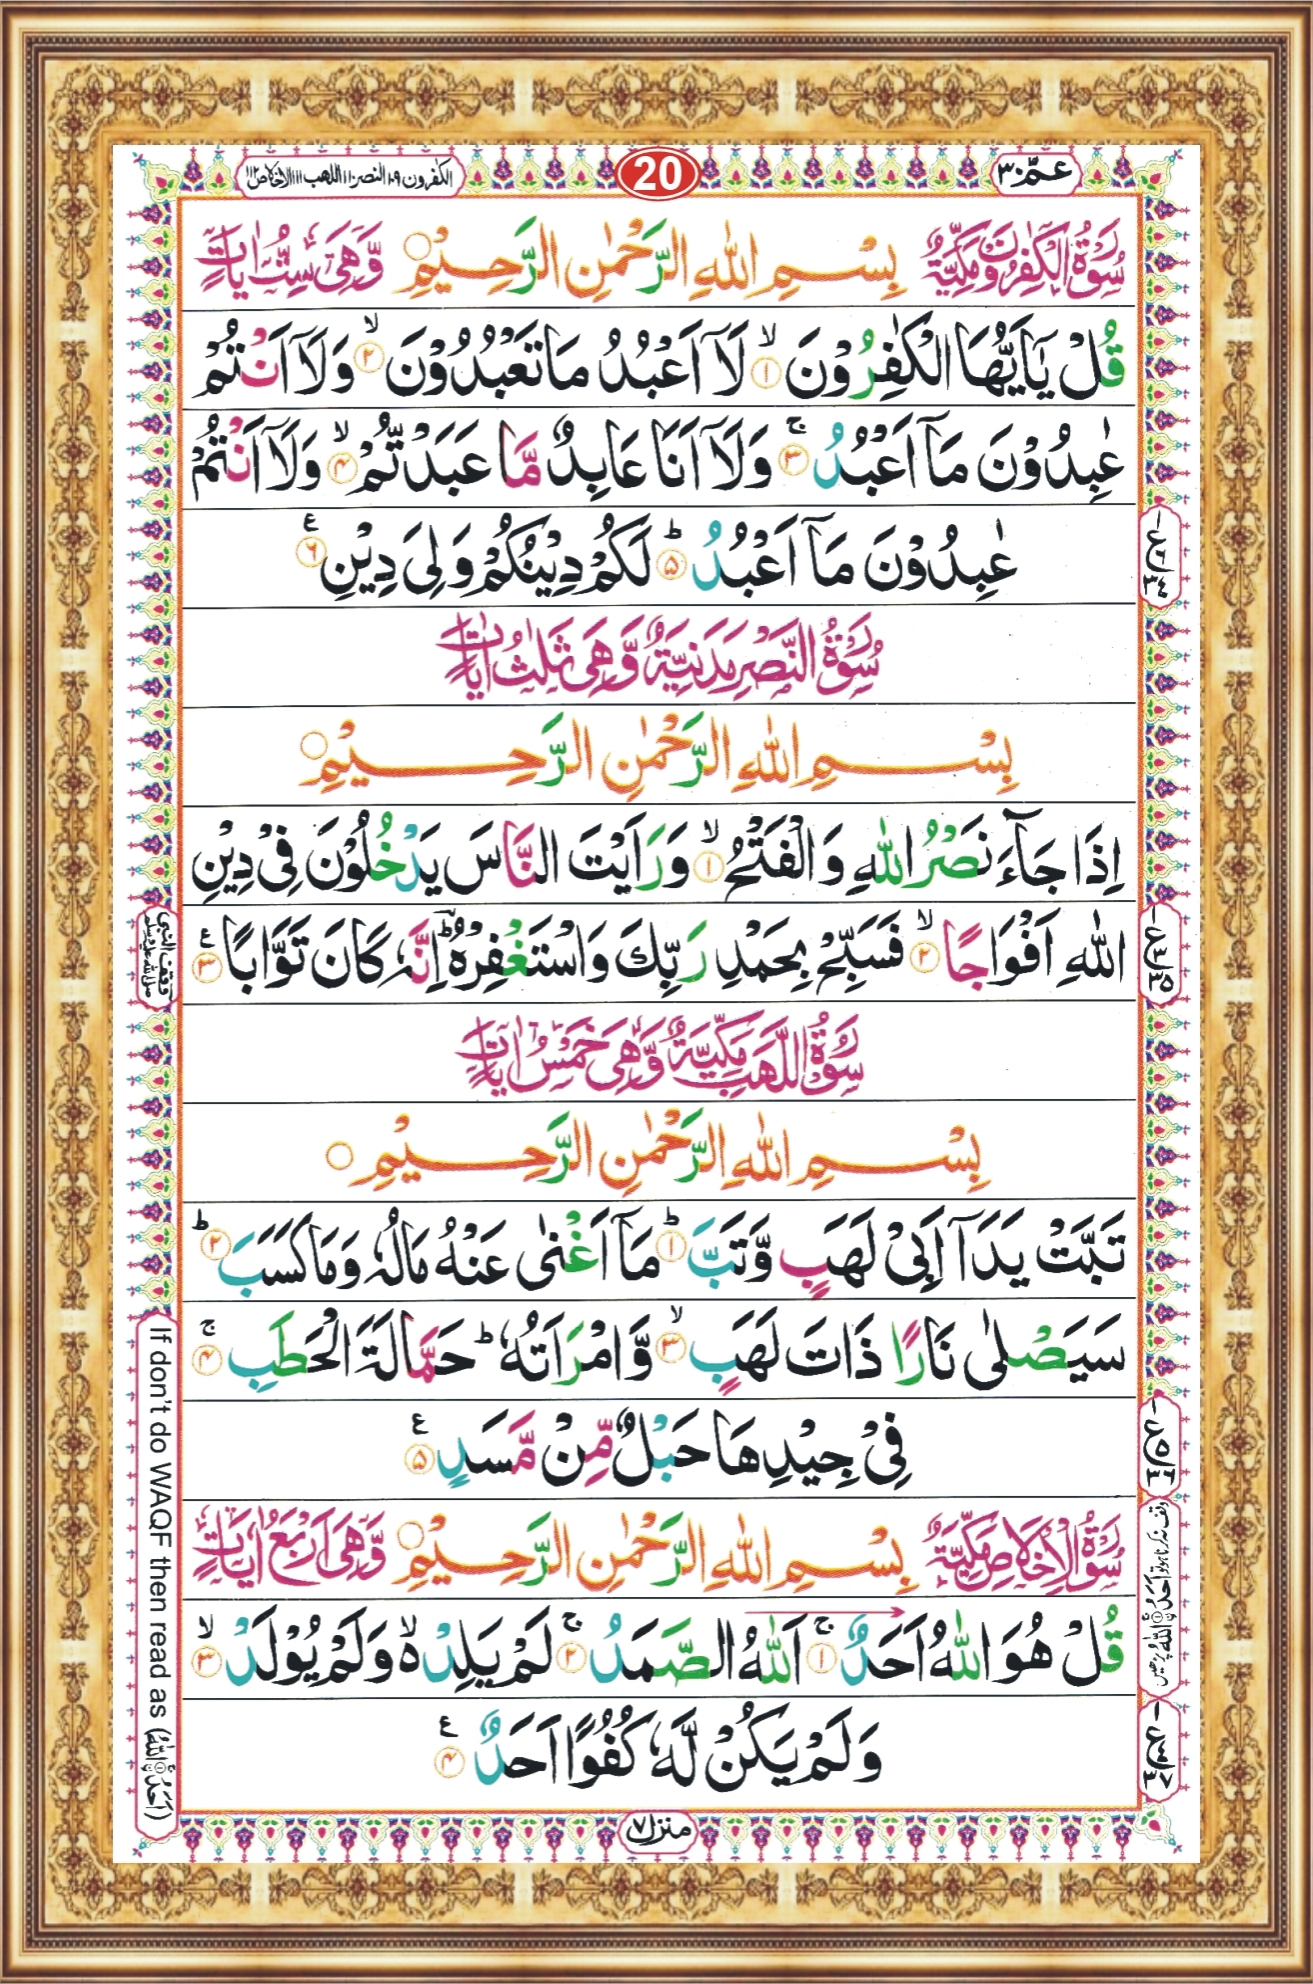 الكفرون ١٠٩ النصر ١١٠ اللهب ١١١ الاخلاص ١١٢
20
عمّ ٣٠
سُوْرَةُ الْكٰفِرُوْنَ مَكِّيَّةٌ بِسْمِ اللّٰهِ الرَّحْمٰنِ الرَّحِيْمِ ○ وَّهِىَ سِتُّ اٰيَاتٍ
قُلْ يٰۤاَيُّهَا الْكٰفِرُوْنَ ۙ﴿۱﴾ لَاۤ اَعْبُدُ مَا تَعْبُدُوْنَ ۙ﴿۲﴾ وَلَاۤ اَنْتُمْ
عٰبِدُوْنَ مَاۤ اَعْبُدُ ۚ﴿۳﴾ وَلَاۤ اَنَا عَابِدٌ مَّا عَبَدْتُّمْ ۙ﴿۴﴾ وَلَاۤ اَنْتُمْ
عٰبِدُوْنَ مَاۤ اَعْبُدُ ؕ﴿۵﴾ لَكُمْ دِيْنُكُمْ وَلِىَ دِيْنِ ﴿۶﴾ ع
سُوْرَةُ النَّصْرِ مَدَنِيَّةٌ وَّهِىَ ثَلٰثُ اٰيَاتٍ
بِسْمِ اللّٰهِ الرَّحْمٰنِ الرَّحِيْمِ ○
اِذَا جَآءَ نَصْرُ اللّٰهِ وَالْفَتْحُ ۙ﴿۱﴾ وَرَاَيْتَ النَّاسَ يَدْخُلُوْنَ فِىْ دِيْنِ
اللّٰهِ اَفْوَاجًا ۙ﴿۲﴾ فَسَبِّحْ بِحَمْدِ رَبِّكَ وَاسْتَغْفِرْهُ ؕ اِنَّهٗ كَانَ تَوَّابًا ﴿۳﴾ ع
وقف النبى صلى الله عليه وسلم
سُوْرَةُ اللَّهَبِ مَكِّيَّةٌ وَّهِىَ خَمْسُ اٰيَاتٍ
بِسْمِ اللّٰهِ الرَّحْمٰنِ الرَّحِيْمِ ○
تَبَّتْ يَدَاۤ اَبِىْ لَهَبٍ وَّتَبَّ ؕ﴿۱﴾ مَاۤ اَغْنٰى عَنْهُ مَالُهٗ وَمَا كَسَبَ ؕ﴿۲﴾
سَيَصْلٰى نَارًا ذَاتَ لَهَبٍ ۙ﴿۳﴾ وَّامْرَاَتُهٗ ؕ حَمَّالَةَ الْحَطَبِ ۚ﴿۴﴾
فِىْ جِيْدِهَا حَبْلٌ مِّنْ مَّسَدٍ ﴿۵﴾ ع
سُوْرَةُ الْاِخْلَاصِ مَكِّيَّةٌ بِسْمِ اللّٰهِ الرَّحْمٰنِ الرَّحِيْمِ ○ وَّهِىَ اَرْبَعُ اٰيَاتٍ
قُلْ هُوَ اللّٰهُ اَحَدٌ ۚ﴿۱﴾ اَللّٰهُ الصَّمَدُ ۚ﴿۲﴾ لَمْ يَلِدْ ۙ وَلَمْ يُوْلَدْ ۙ﴿۳﴾
وَلَمْ يَكُنْ لَّهٗ كُفُوًا اَحَدٌ ﴿۴﴾ ع
If don't do WAQF then read as
منزل ٧